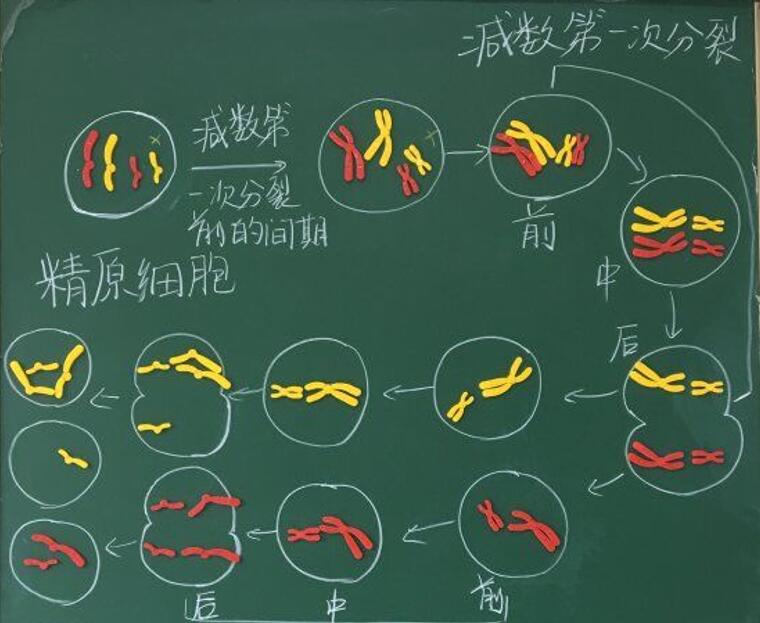 减数第一次分裂
减数第
一次分裂
前的间期
精原细胞
前
中
后
后 中 前